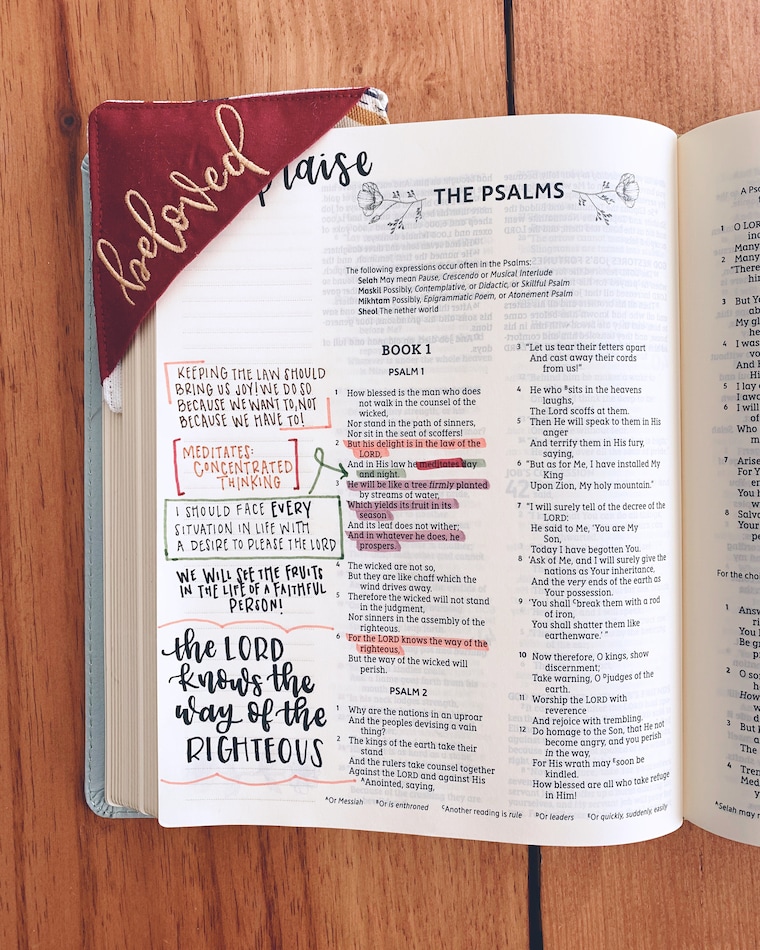 beloved
praise
THE PSALMS
The following expressions occur often in the Psalms:
Selah May mean Pause, Crescendo or Musical Interlude
Maskil Possibly, Contemplative, or Didactic, or Skillful Psalm
Mikhtam Possibly, Epigrammatic Poem, or Atonement Psalm
Sheol The nether world
KEEPING THE LAW SHOULD
BRING US JOY! WE DO SO
BECAUSE WE WANT TO, NOT
BECAUSE WE HAVE TO!
MEDITATES:
CONCENTRATED
THINKING
I SHOULD FACE EVERY
SITUATION IN LIFE WITH
A DESIRE TO PLEASE THE LORD
WE WILL SEE THE FRUITS
IN THE LIFE OF A FAITHFUL
PERSON!
the LORD
knows the
way of the
RIGHTEOUS
BOOK 1
PSALM 1
1 How blessed is the man who does
not walk in the counsel of the
wicked,
Nor stand in the path of sinners,
Nor sit in the seat of scoffers!
2 But his delight is in the law of the
LORD,
And in His law he meditates day
and night.
3 He will be like a tree firmly planted
by streams of water,
Which yields its fruit in its
season
And its leaf does not wither;
And in whatever he does, he
prospers.
4 The wicked are not so,
But they are like chaff which the
wind drives away.
5 Therefore the wicked will not stand
in the judgment,
Nor sinners in the assembly of the
righteous.
6 For the LORD knows the way of the
righteous,
But the way of the wicked will
perish.
PSALM 2
1 Why are the nations in an uproar
And the peoples devising a vain
thing?
2 The kings of the earth take their
stand
And the rulers take counsel together
Against the LORD and against His
AAnointed, saying,
3 "Let us tear their fetters apart
And cast away their cords
from us!"
4 He who Bsits in the heavens
laughs,
The Lord scoffs at them.
5 Then He will speak to them in His
anger
And terrify them in His fury,
saying,
6 "But as for Me, I have installed My
King
Upon Zion, My holy mountain."
7 "I will surely tell of the decree of the
LORD:
He said to Me, 'You are My
Son,
Today I have begotten You.
8 'Ask of Me, and I will surely give the
nations as Your inheritance,
And the very ends of the earth as
Your possession.
9 'You shall Cbreak them with a rod
of iron,
You shall shatter them like
earthenware.' "
10 Now therefore, O kings, show
discernment;
Take warning, O Djudges of the
earth.
11 Worship the LORD with
reverence
And rejoice with trembling.
12 Do homage to the Son, that He not
become angry, and you perish
in the way,
For His wrath may Esoon be
kindled.
How blessed are all who take refuge
in Him!
AOr Messiah BOr is enthroned CAnother reading is rule DOr leaders EOr quickly, suddenly, easily
A Ps
1 O LOR
Many
2 Many
"There
3 But Yo
My gl
4 I was
And H
5 I lay
I awa
6 I will
Who
7 Arise
For Y
And b
8 Salva
Your
For the choi
1 Answ
You
Be gr
2 O so
How
3 But k
The
4 Trem
Med
ASelah may